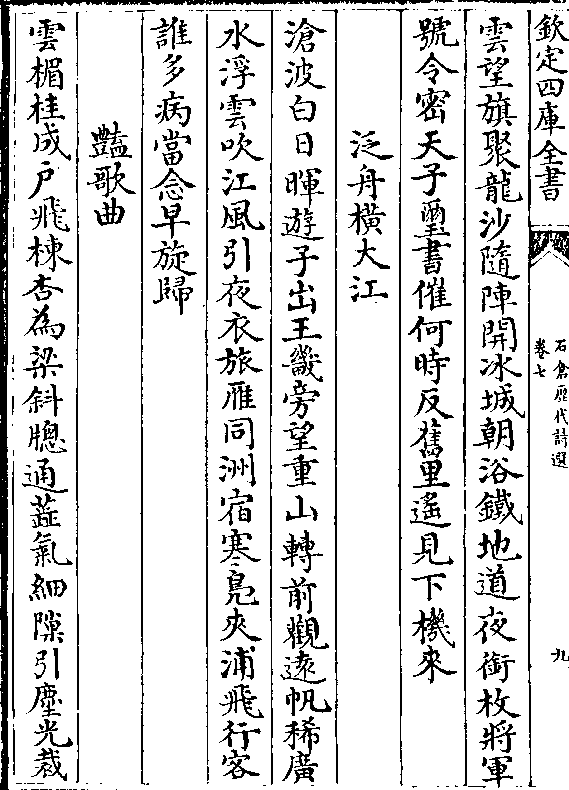 欽定四庫全書
石倉歷代詩選
卷七
九
雲望旗聚龍沙隨陣開冰城朝浴鐵地道夜銜枚將軍
號令密天子璽書催何時反舊里遙見下機來
泛舟橫大江
滄波白日暉遊子出王畿旁望重山轉前觀遠帆稀廣
水浮雲吹江風引夜衣旅雁同洲宿寒鳧夾浦飛行客
誰多病當念早旋歸
豔歌曲
雲楣桂成戶飛棟杏為梁斜牕通蕋氣細隙引塵光裁